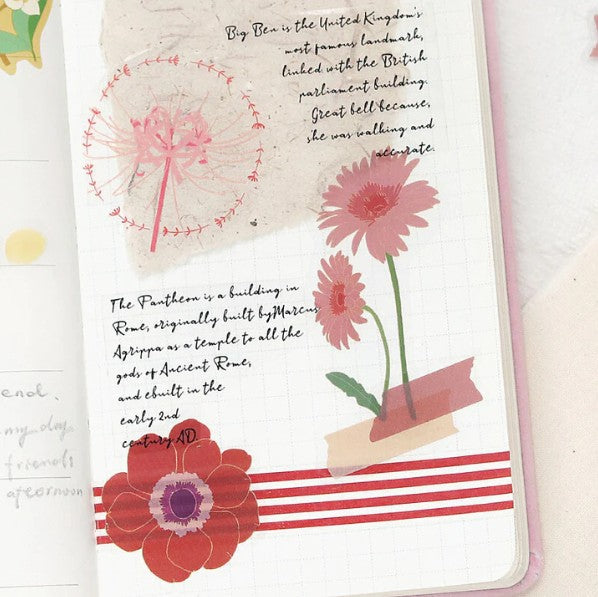 Big Ben is the United Kingdom's
most famous landmark,
linked with the British
parliament building.
Great bell because,
she was walking and
accurate.
The Pantheon is a building in
Rome, originally built byMarcus
Agrippa as a temple to all the
gods of Ancient Rome,
and ebuilt in the
early 2nd
century AD.
end.
my day.
friends
afternoon